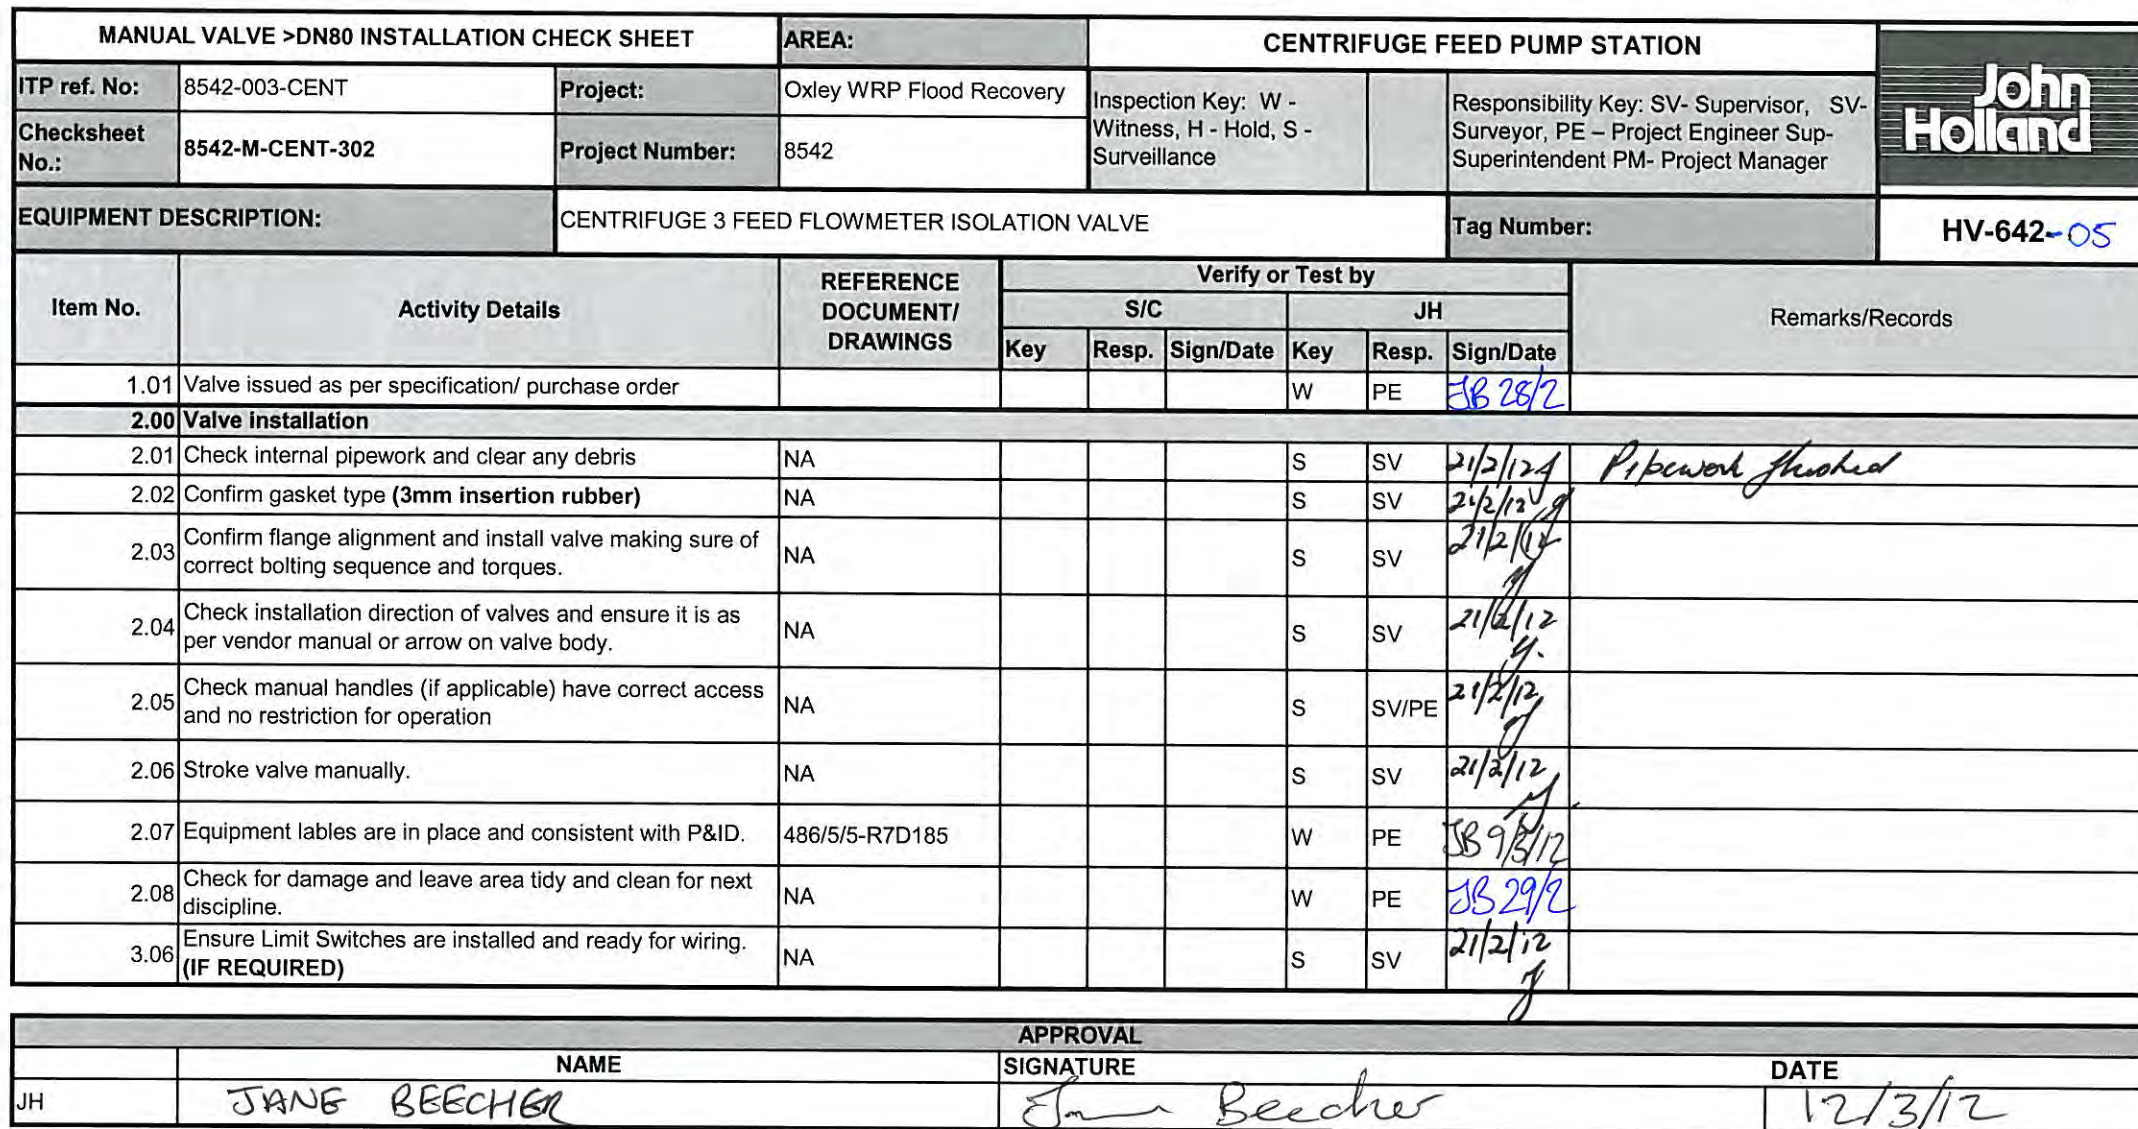 MANUAL VALVE >DN80 INSTALLATION CHECK SHEET AREA: CENTRIFUGE FEED PUMP STATION
John Holland
ITP ref. No: 8542-003-CENT Project: Oxley WRP Flood Recovery
Inspection Key: W -
Witness, H - Hold, S -
Surveillance
Responsibility Key: SV- Supervisor, SV-
Surveyor, PE – Project Engineer Sup-
Superintendent PM- Project Manager
Checksheet
No.: 8542-M-CENT-302 Project Number: 8542
EQUIPMENT DESCRIPTION: CENTRIFUGE 3 FEED FLOWMETER ISOLATION VALVE Tag Number: HV-642-05
Item No. Activity Details
REFERENCE
DOCUMENT/
DRAWINGS
Verify or Test by
S/C JH
Key Resp. Sign/Date Key Resp. Sign/Date
Remarks/Records
1.01 Valve issued as per specification/ purchase order W PE JB 28/2
2.00 Valve installation
2.01 Check internal pipework and clear any debris NA S SV 21/2/12 Pipework flushed
2.02 Confirm gasket type (3mm insertion rubber) NA S SV 21/2/12
2.03 Confirm flange alignment and install valve making sure of
correct bolting sequence and torques. NA S SV 21/2/12
2.04 Check installation direction of valves and ensure it is as
per vendor manual or arrow on valve body. NA S SV 21/2/12
2.05 Check manual handles (if applicable) have correct access
and no restriction for operation NA S SV/PE 21/2/12
2.06 Stroke valve manually. NA S SV 21/2/12
2.07 Equipment lables are in place and consistent with P&ID. 486/5/5-R7D185 W PE JB 9/3/12
2.08 Check for damage and leave area tidy and clean for next
discipline. NA W PE JB 29/2
3.06 Ensure Limit Switches are installed and ready for wiring.
(IF REQUIRED) NA S SV 21/2/12
APPROVAL
NAME SIGNATURE DATE
JH JANE BEECHER Jane Beecher 12/3/12